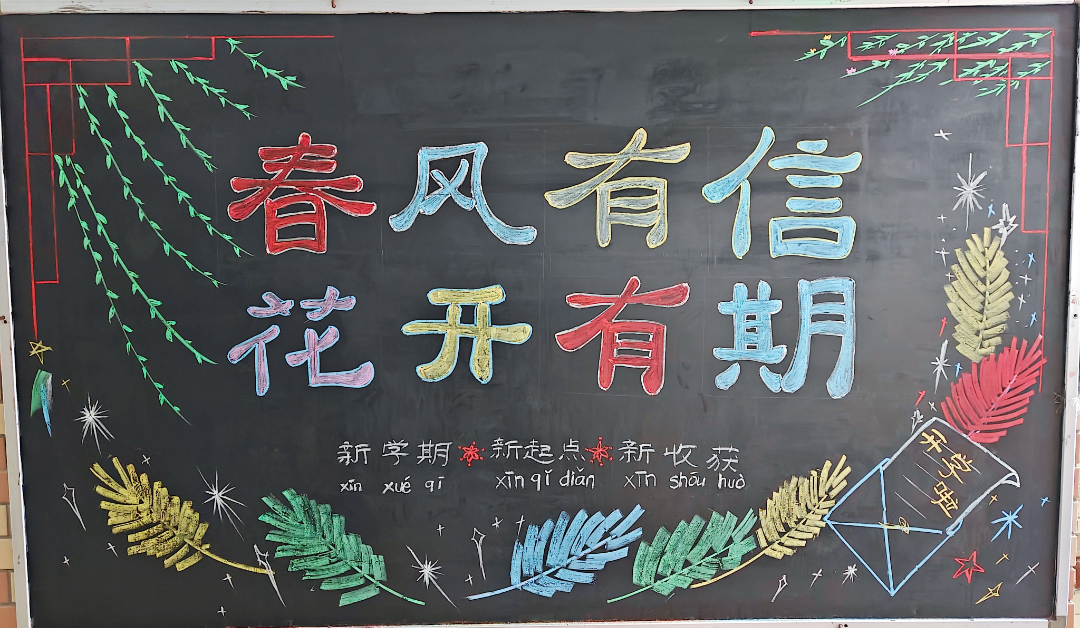 春风有信
花开有期
新学期 新起点 新收获
xīn xué qī xīn qǐ diǎn xīn shōu huò
开学啦